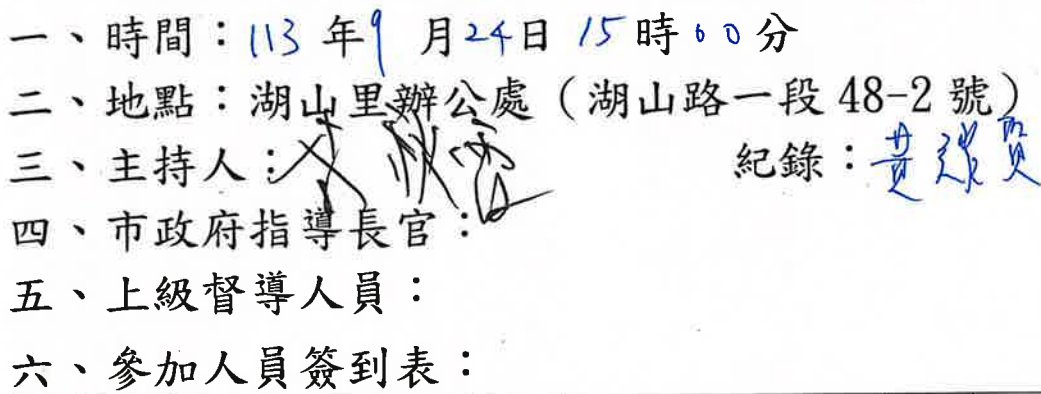 一、時間：113年9月24日15時00分
二、地點：湖山里辦公處（湖山路一段48-2號）
三、主持人： 紀錄：黃
四、市政府指導長官：
五、上級督導人員：
六、參加人員簽到表：